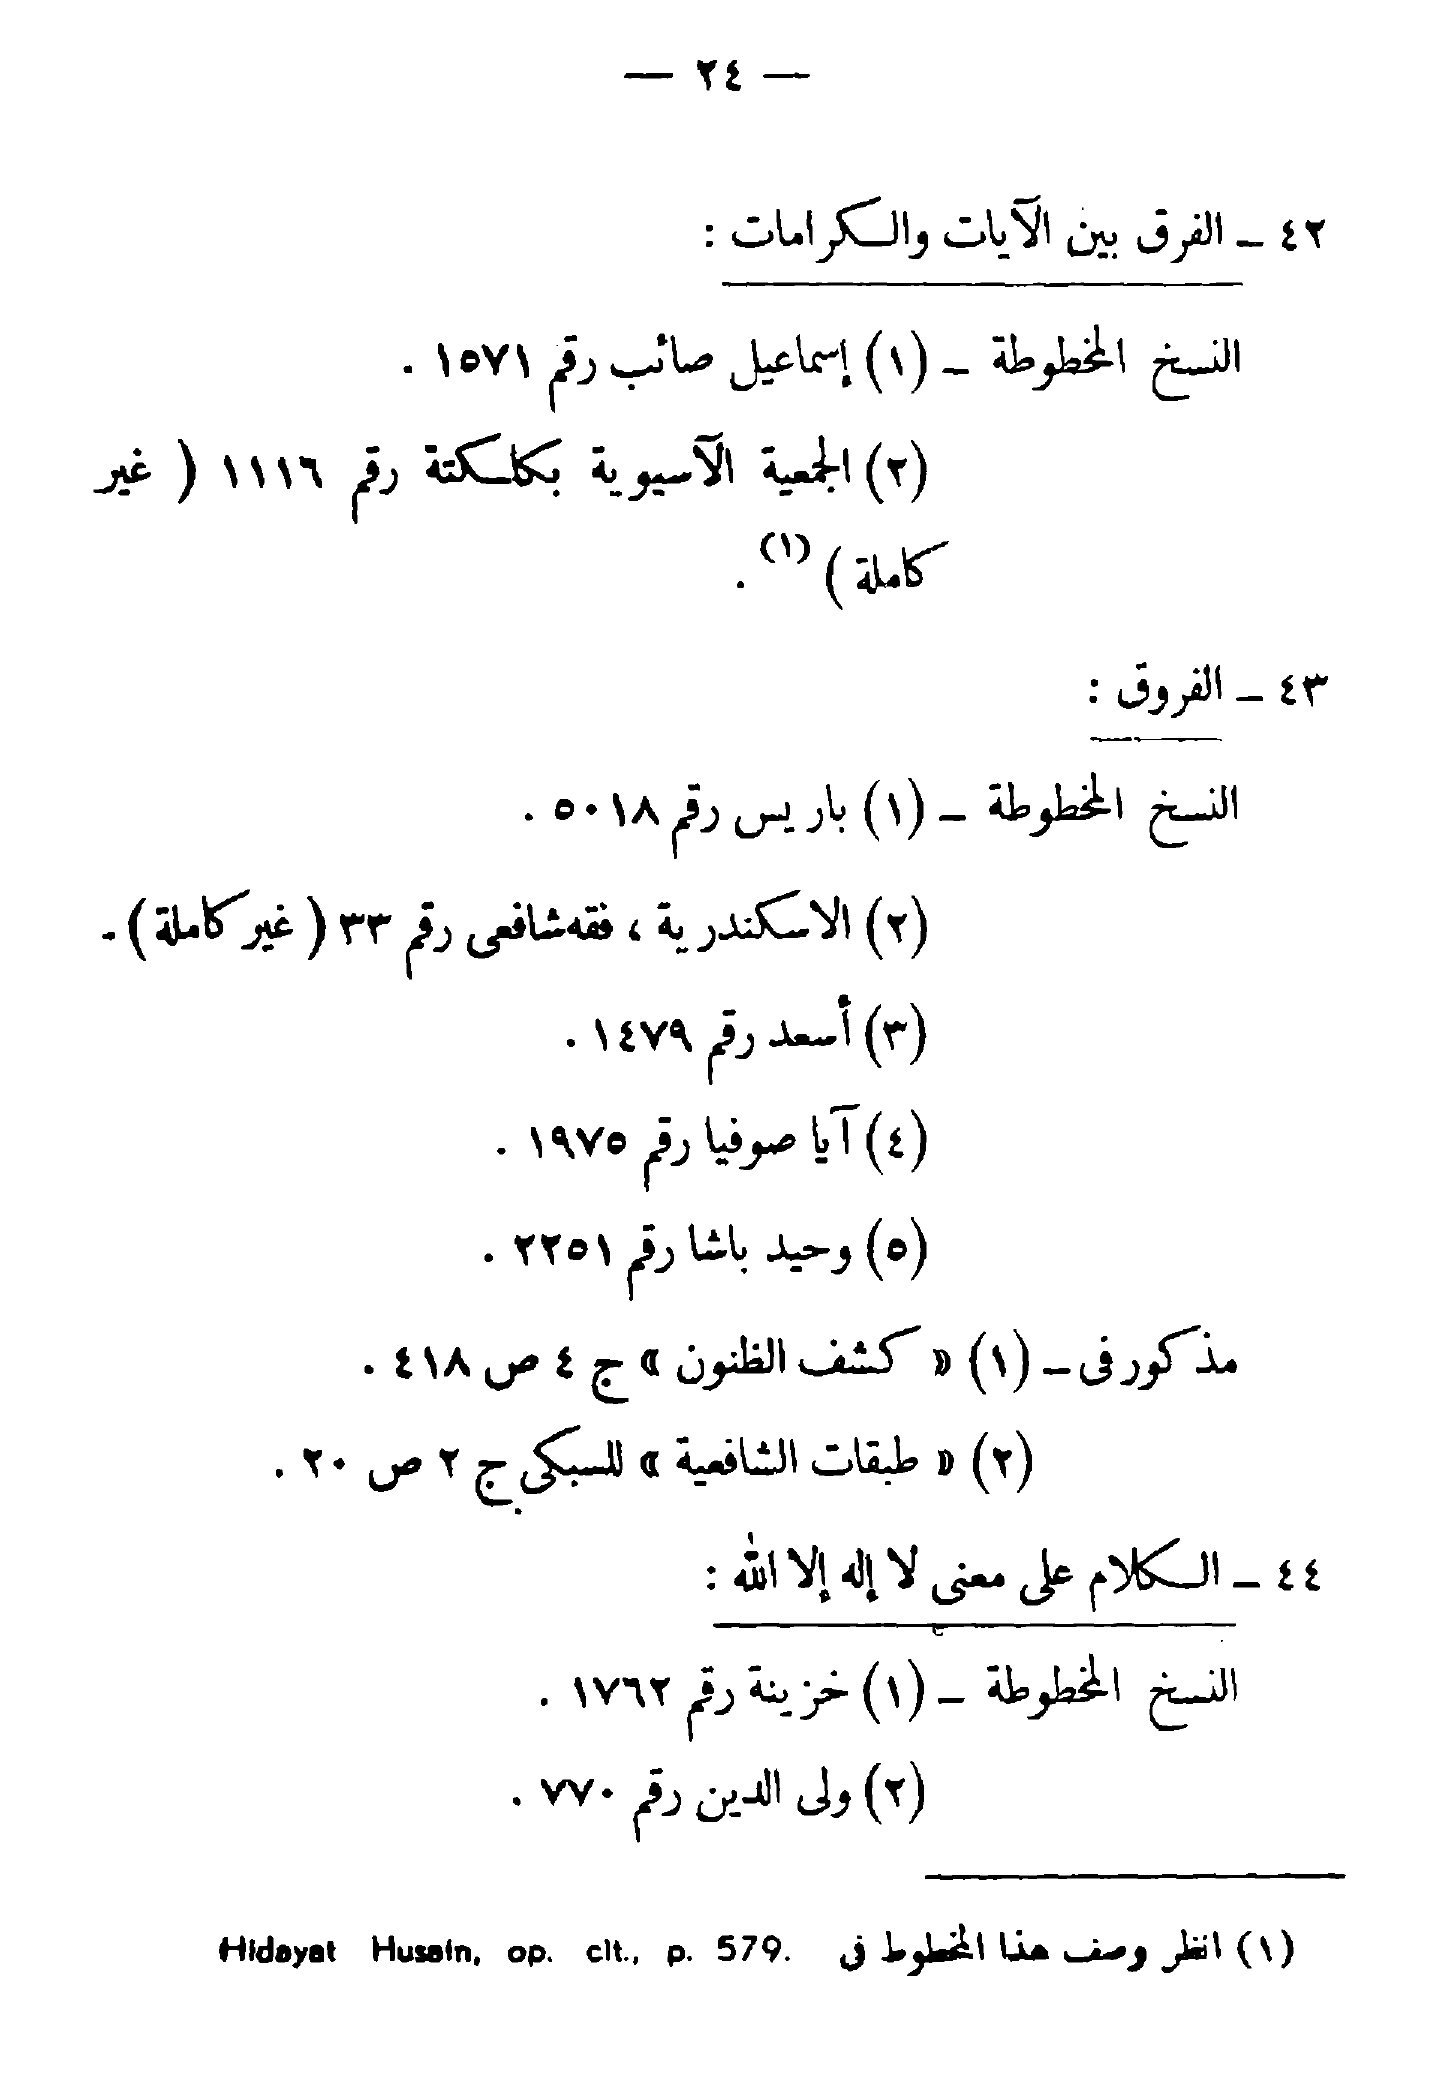 — ٢٤ —
٤٢ – الفرق بين الآيات والكرامات :
النسخ المخطوطة – (١) إسماعيل صائب رقم ١٥٧١ .
(٢) الجمعية الآسيوية بكلكتة رقم ١١١٦ ( غير
كاملة ) (١) .
٤٣ – الفروق :
النسخ المخطوطة – (١) باريس رقم ٥٠١٨ .
(٢) الاسكندرية ، فقه شافعى رقم ٣٣ ( غير كاملة ) .
(٣) أسعد رقم ١٤٧٩ .
(٤) آيا صوفيا رقم ١٩٧٥ .
(٥) وحيد باشا رقم ٢٢٥١ .
مذكور فى – (١) « كشف الظنون » ج ٤ ص ٤١٨ .
(٢) « طبقات الشافعية » للسبكى ج ٢ ص ٢٠ .
٤٤ – الكلام على معنى لا إله إلا الله :
النسخ المخطوطة – (١) خزينة رقم ١٧٦٢ .
(٢) ولى الدين رقم ٧٧٠ .
(١) انظر وصف هذا المخطوط فى Hidayat Husain, op. cit., p. 579.